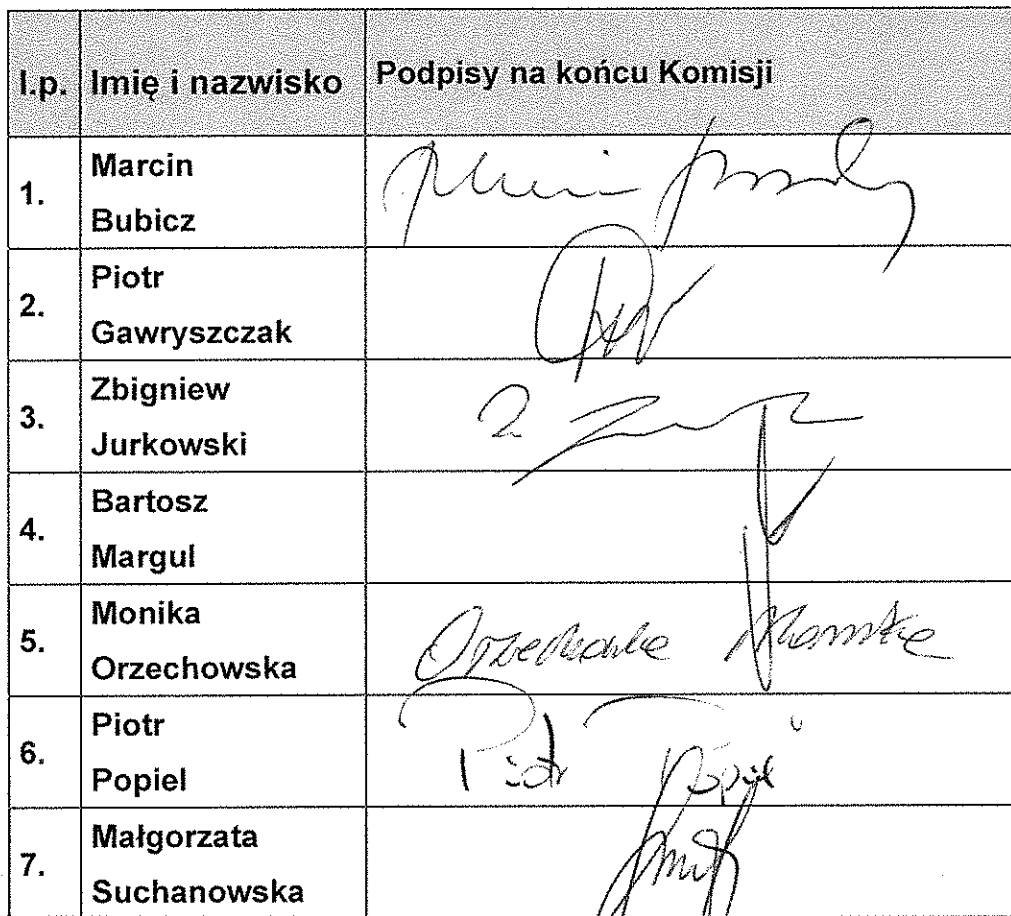 l.p. Imię i nazwisko Podpisy na końcu Komisji
1. Marcin
Bubicz
2. Piotr
Gawryszczak
3. Zbigniew
Jurkowski
4. Bartosz
Margul
5. Monika
Orzechowska
Orzechowska Monika
6. Piotr
Popiel
Piotr Popiel
7. Małgorzata
Suchanowska